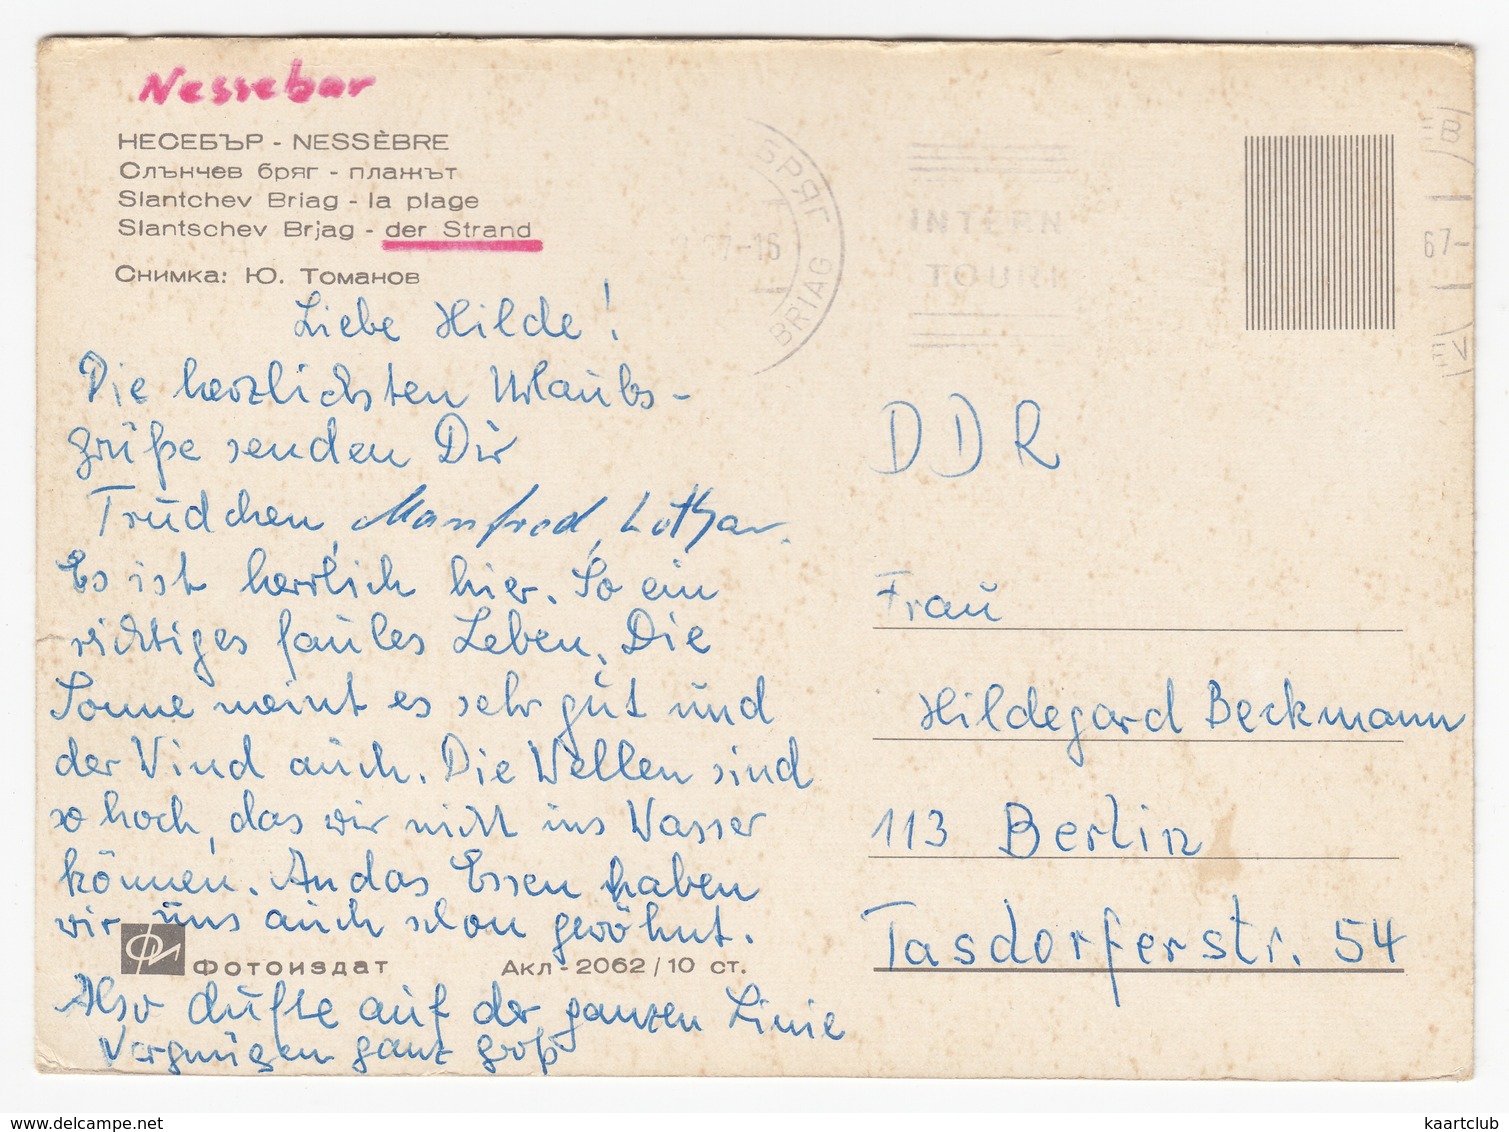 Nessebar
НЕСЕБЪР - NESSÈBRE
Слънчев бряг - плажът
Slantchev Briag - la plage
Slantschev Brjag - der Strand
Снимка: Ю. Томанов
Liebe Hilde!
Die herzlichsten Urlaubs-
grüße senden Dir
Trudchen, Manfred, Lothar.
Es ist herrlich hier. So ein
richtiges faules Leben. Die
Sonne meint es sehr gut und
der Wind auch. Die Wellen sind
so hoch, das wir nicht ins Wasser
können. An das Essen haben
wir uns auch schon gewöhnt.
Фотоиздат Акл-2062/10 ст.
Also dufte auf der ganzen Linie
Vergnügen ganz groß
БРЯГ
7-16
BRIAG
INTERN
TOURI
67-
EV
DDR
Frau
Hildegard Beckmann
113 Berlin
Tasdorferstr. 54
kaartclub